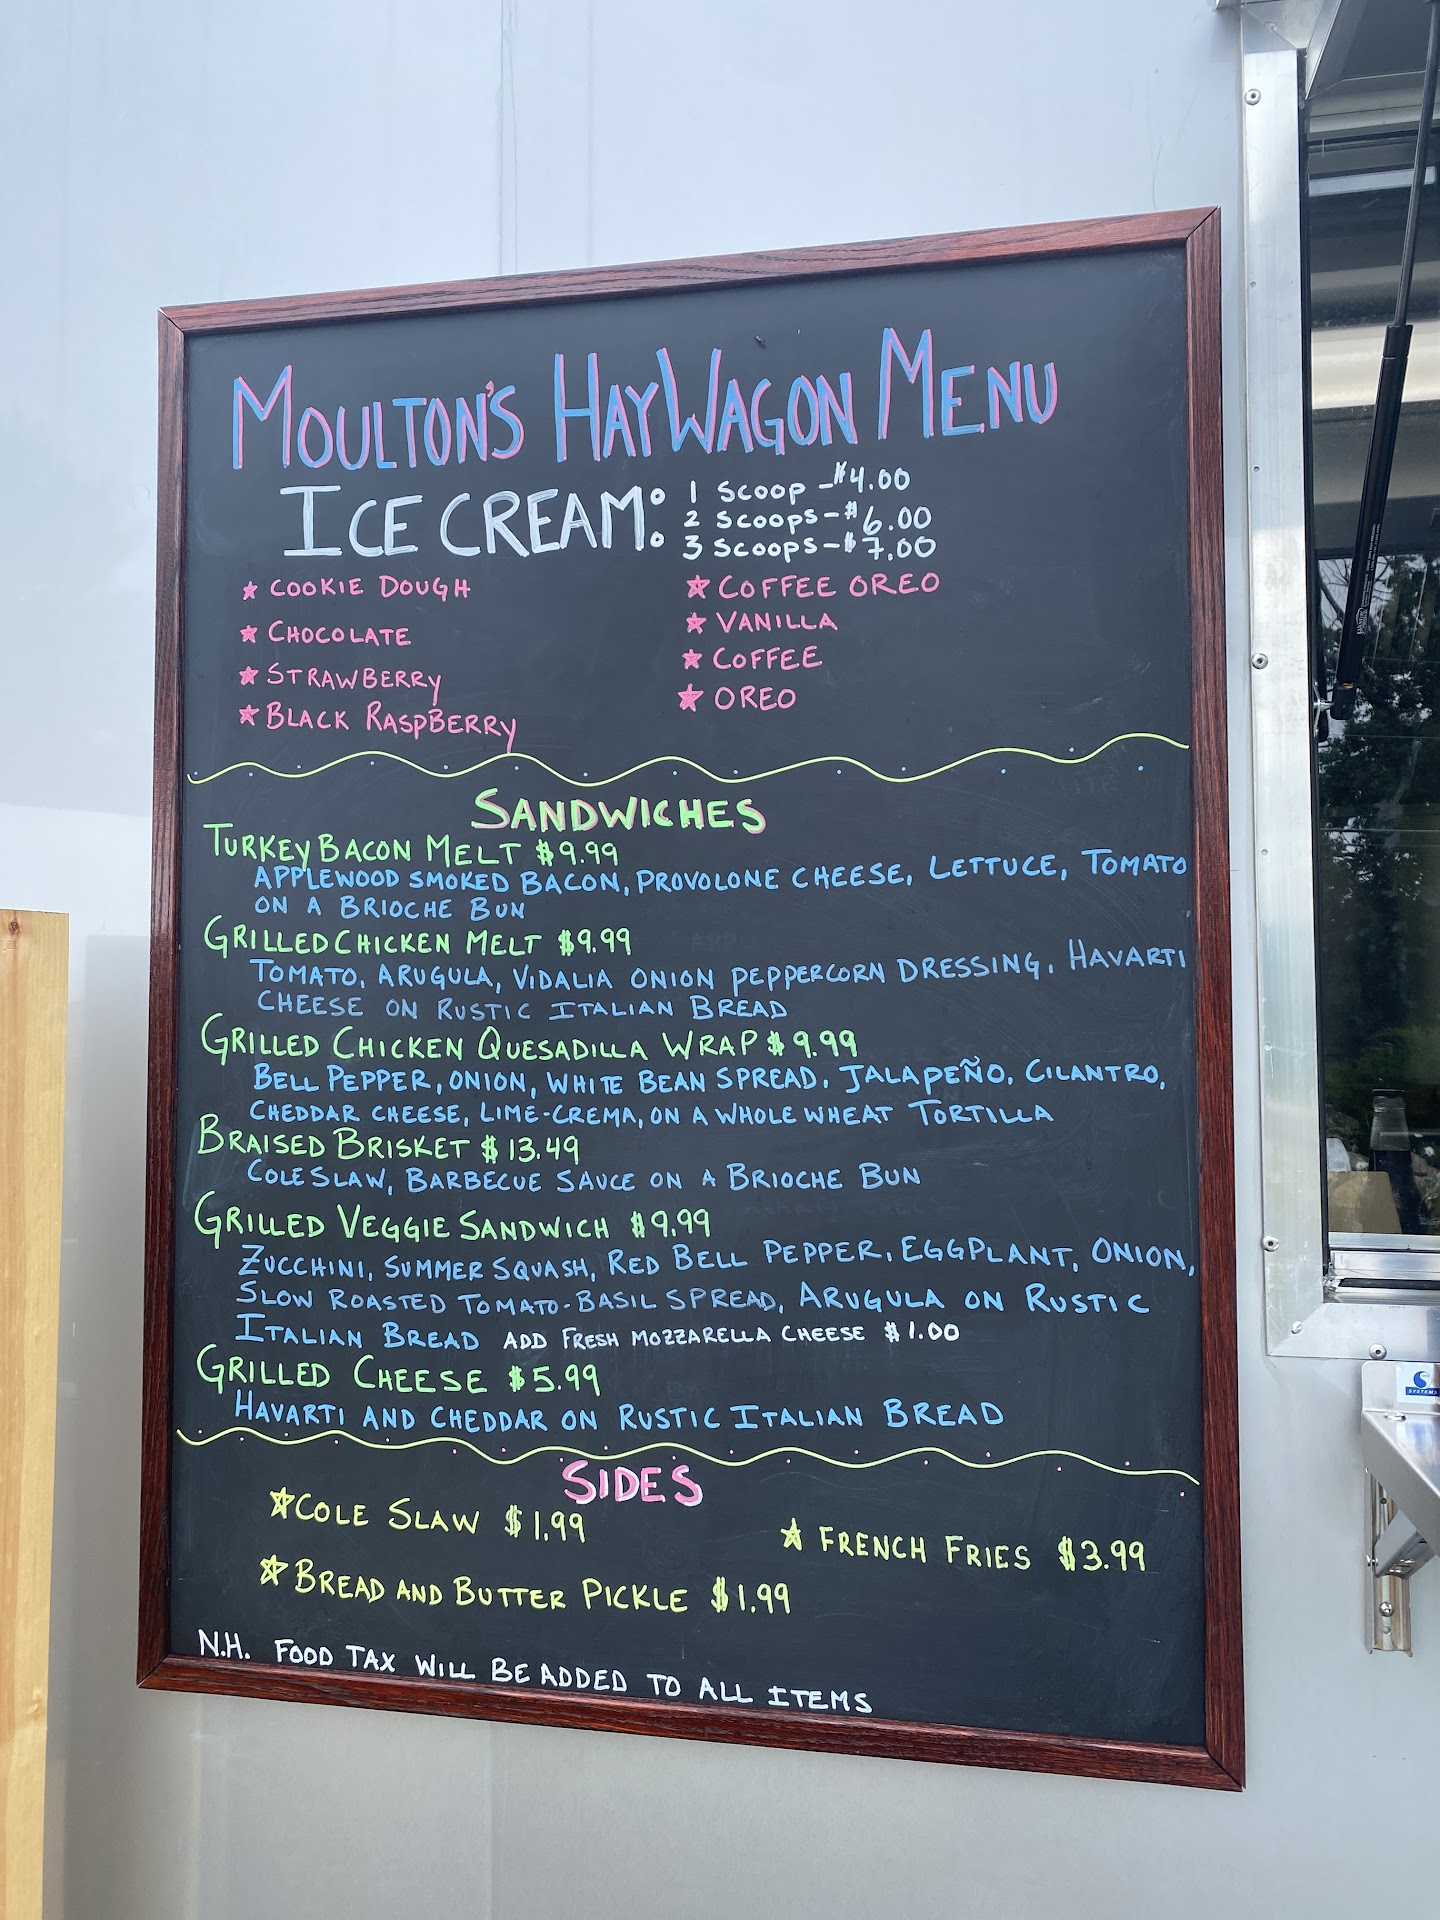 MOULTON'S HAYWAGON MENU
ICE CREAM:
1 SCOOP -$4.00
2 SCOOPS-$6.00
3 SCOOPS-$7.00
COOKIE DOUGH
CHOCOLATE
STRAWBERRY
BLACK RASPBERRY
COFFEE OREO
VANILLA
COFFEE
OREO
SANDWICHES
TURKEY BACON MELT $9.99
APPLEWOOD SMOKED BACON, PROVOLONE CHEESE, LETTUCE, TOMATO
ON A BRIOCHE BUN
GRILLED CHICKEN MELT $9.99
TOMATO, ARUGULA, VIDALIA ONION PEPPERCORN DRESSING, HAVARTI
CHEESE ON RUSTIC ITALIAN BREAD
GRILLED CHICKEN QUESADILLA WRAP $9.99
BELL PEPPER, ONION, WHITE BEAN SPREAD, JALAPEÑO, CILANTRO,
CHEDDAR CHEESE, LIME-CREMA, ON A WHOLE WHEAT TORTILLA
BRAISED BRISKET $13.49
COLE SLAW, BARBECUE SAUCE ON A BRIOCHE BUN
GRILLED VEGGIE SANDWICH $9.99
ZUCCHINI, SUMMER SQUASH, RED BELL PEPPER, EGGPLANT, ONION,
SLOW ROASTED TOMATO-BASIL SPREAD, ARUGULA ON RUSTIC
ITALIAN BREAD ADD FRESH MOZZARELLA CHEESE $1.00
GRILLED CHEESE $5.99
HAVARTI AND CHEDDAR ON RUSTIC ITALIAN BREAD
SIDES
COLE SLAW $1.99
FRENCH FRIES $3.99
BREAD AND BUTTER PICKLE $1.99
N.H. FOOD TAX WILL BE ADDED TO ALL ITEMS
SYSTEMS